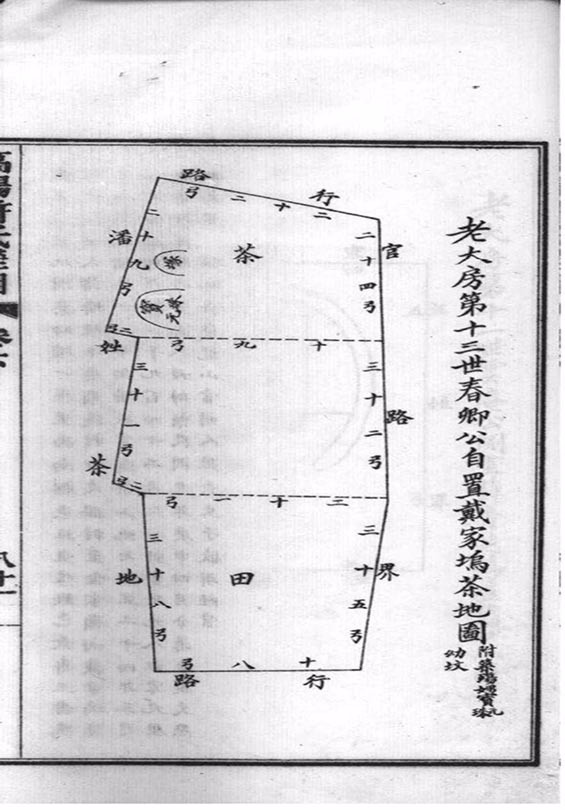 老大房第十三世春卿公自置戴家塢茶地圖
幼坟
行路
二十二弓
官路界
二十四弓
三十二弓
三十五弓
茶
十九弓
二十一弓
田
十八弓
行路
潘姓茶地
二十九弓
二弓
三十一弓
二弓
三十八弓